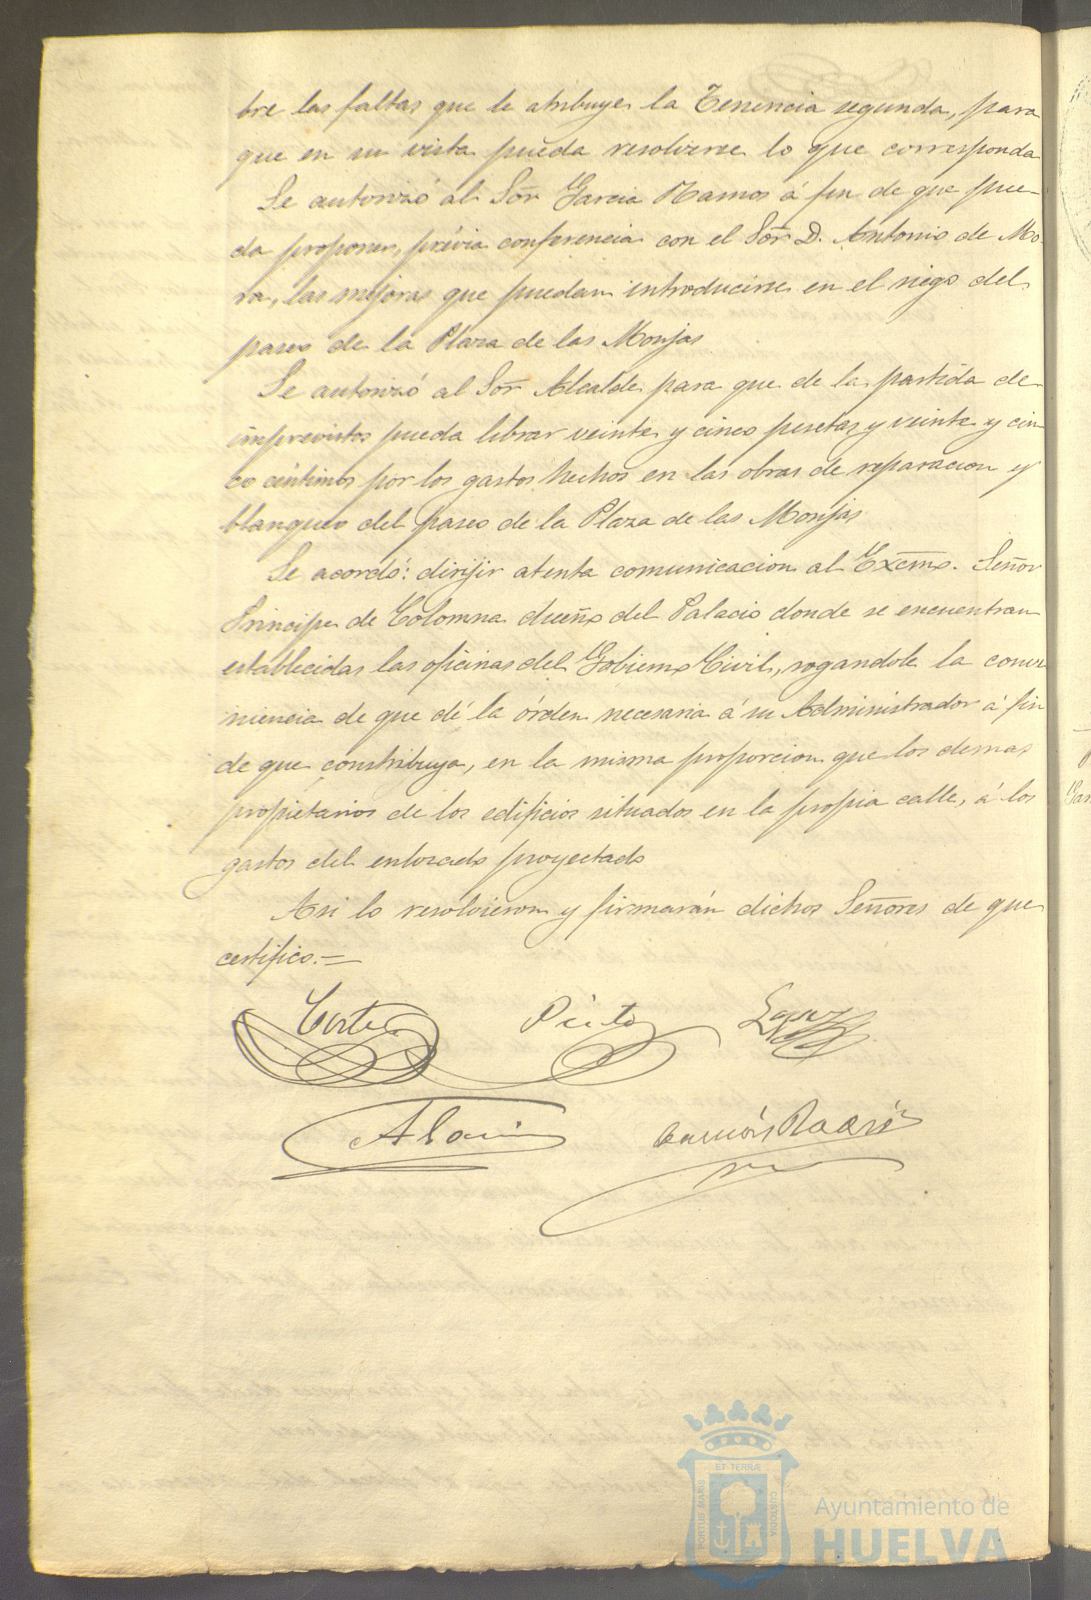 bre las faltas que le atribuye la Tenencia segunda, para
que en su vista pueda resolverse lo que corresponda
Se autorizó al Sor̃ Garcia Ramos á fin de que pue-
da proponer, prévia conferencia con el Sor̃ D. Antonio de Mo-
ra, las mejoras que puedan introducirse en el riego del
paseo de la Plaza de las Monjas
Se autorizó al Sor̃ Alcalde para que de la partida de
imprevistos pueda librar veinte y cinco pesetas y veinte y cin
co céntimos por los gastos hechos en las obras de reparacion y
blanqueo del paseo de la Plaza de las Monjas.
Se acordó: dirijir atenta comunicacion al Excm̃o. Señor
Principe de Colomna dueño del Palacio donde se encuentran
establecidas las oficinas del Gobierno Civil, rogandole la conve
niencia de que dé la órden necesaria á su Administrador á fin
de que constribuya, en la misma proporcion que los demas
propietarios de los edificios situados en la propia calle, á los
gastos del enlozado proyectado
Asi lo resolvieron y firmarán dichos Señores de que
certifico.=
Ayuntamiento de
HUELVA
PORTUS MARIS
ET TERRÆ
CUSTODIA